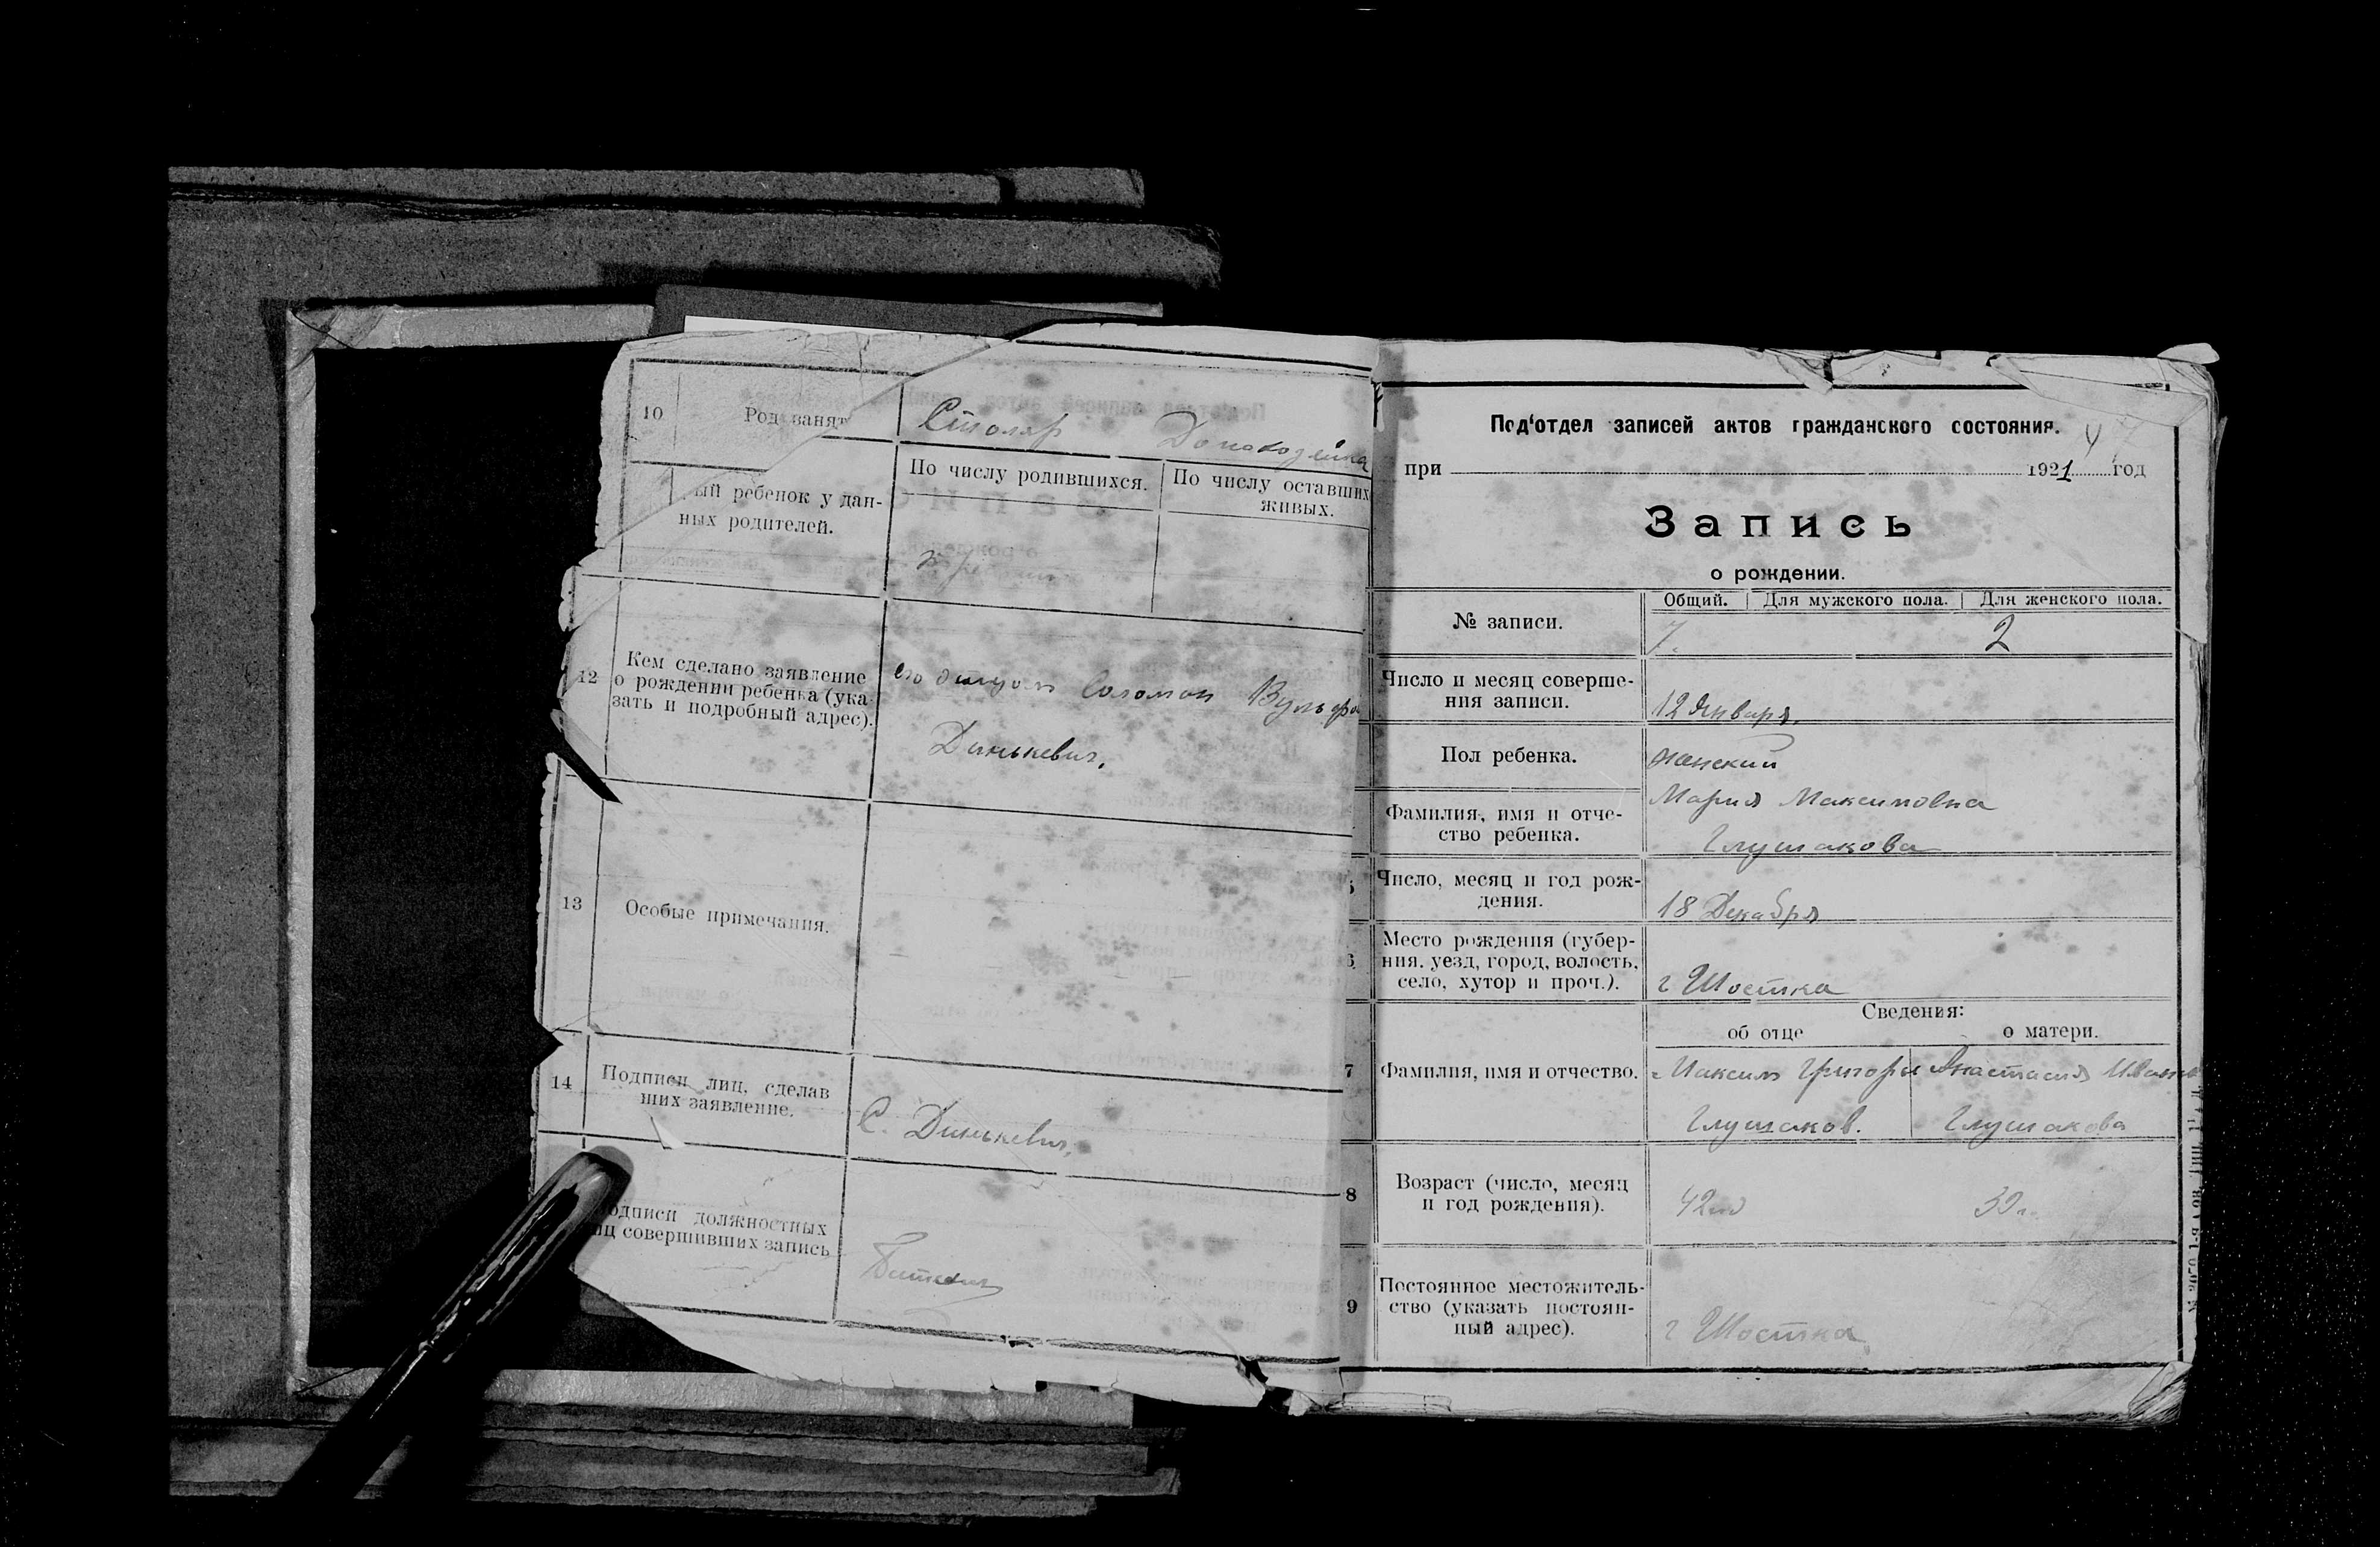 10
Род занят
Столяр
По числу родившихся.
По числу оставших
живых.
ый ребенок у дан-
ных родителей.
12
Кем сделано заявление
о рождении ребенка (ука-
зать и подробный адрес).
Соломон Вульфо
Динькевич,
13
Особые примечания.
14
Подписи лиц, сделав
ших заявление.
С. Динькевич,
одписи должностных
иц совершивших запись
Под‘отдел записей актов гражданского состояния.
при 1921 год
Запись
о рождении.
№ записи.
Общий. Для мужского пола. Для женского пола.
7. 2
Число и месяц соверше-
ния записи.
12 Января.
Пол ребенка.
женский
Фамилия, имя и отче-
ство ребенка.
Мария Максимовна
Глушакова
5
Число, месяц и год рож-
дения.
18 Декабря
6
Место рождения (губер-
ния, уезд, город, волость,
село, хутор и проч.).
г Шостка
Сведения:
об отце о матери.
7
Фамилия, имя и отчество.
Максим Григорь Анастасия Иванов
Глушаков. Глушакова
8
Возраст (число, месяц
и год рождения).
42 39
9
Постоянное местожитель-
ство (указать постоян-
ный адрес).
г Шостка